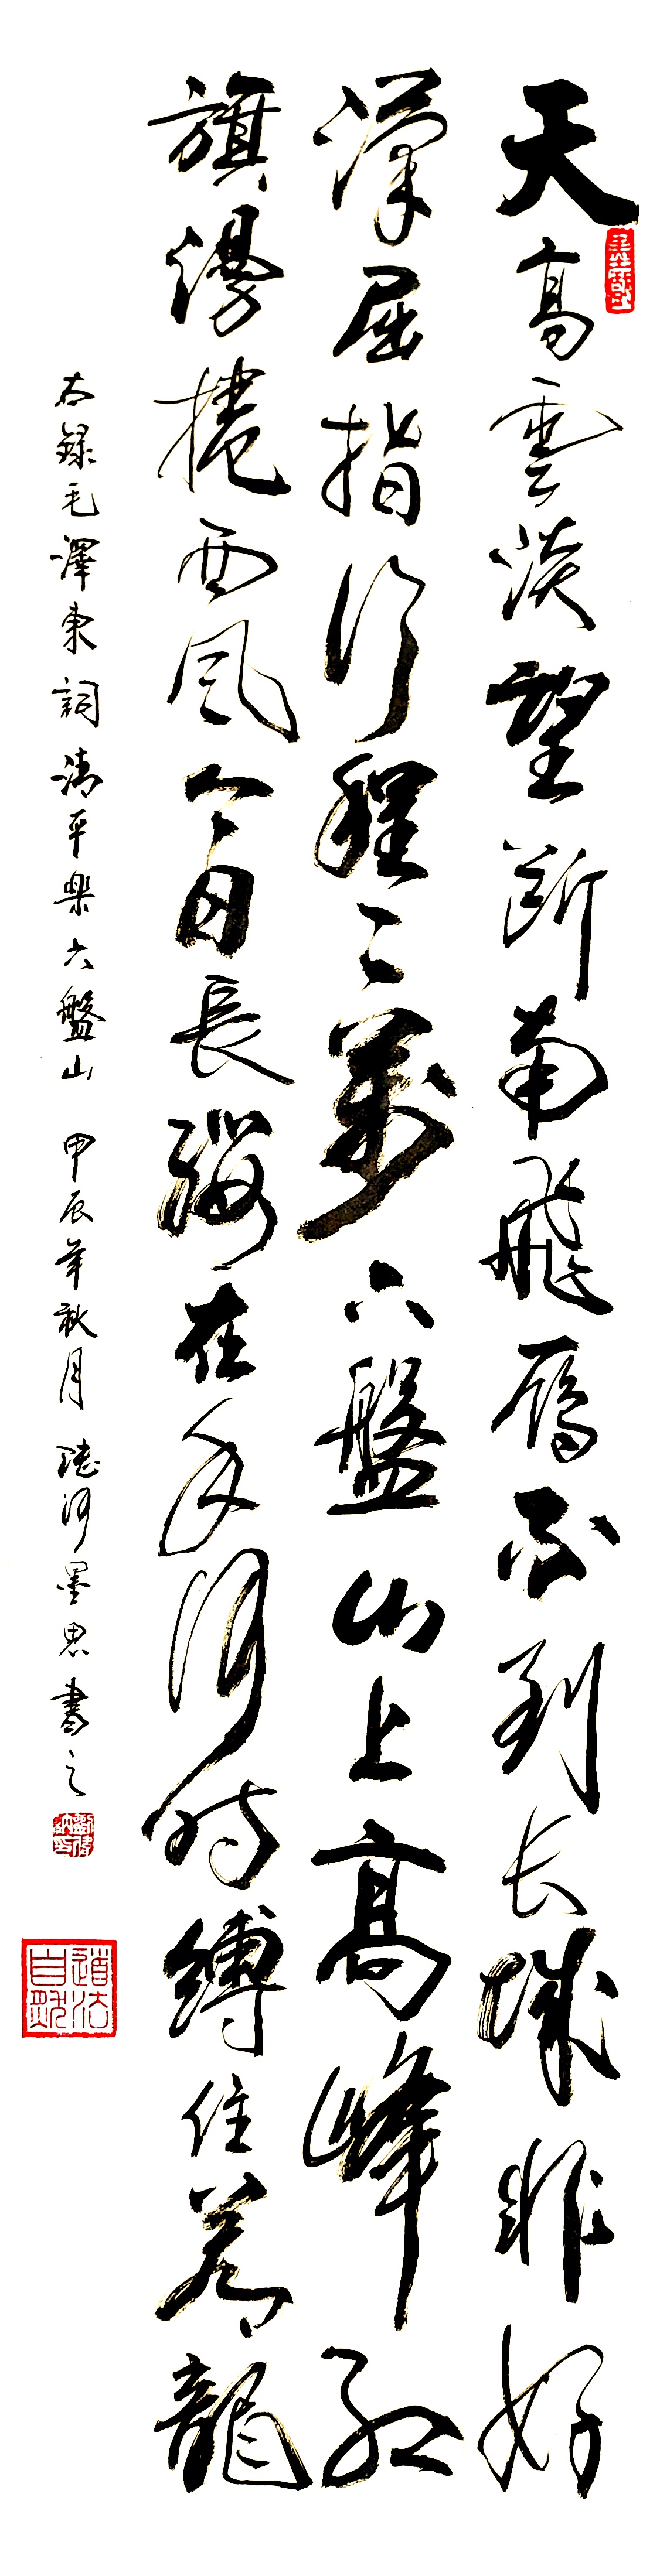 天高雲淡望断南飛雁不到长城非好
漢屈指行程二萬六盤山上高峰红
旗漫捲西風今日長纓在手何时縛住蒼龍
右錄毛澤東詞清平樂六盤山 甲辰年秋月 聴河墨思書之
道法自然